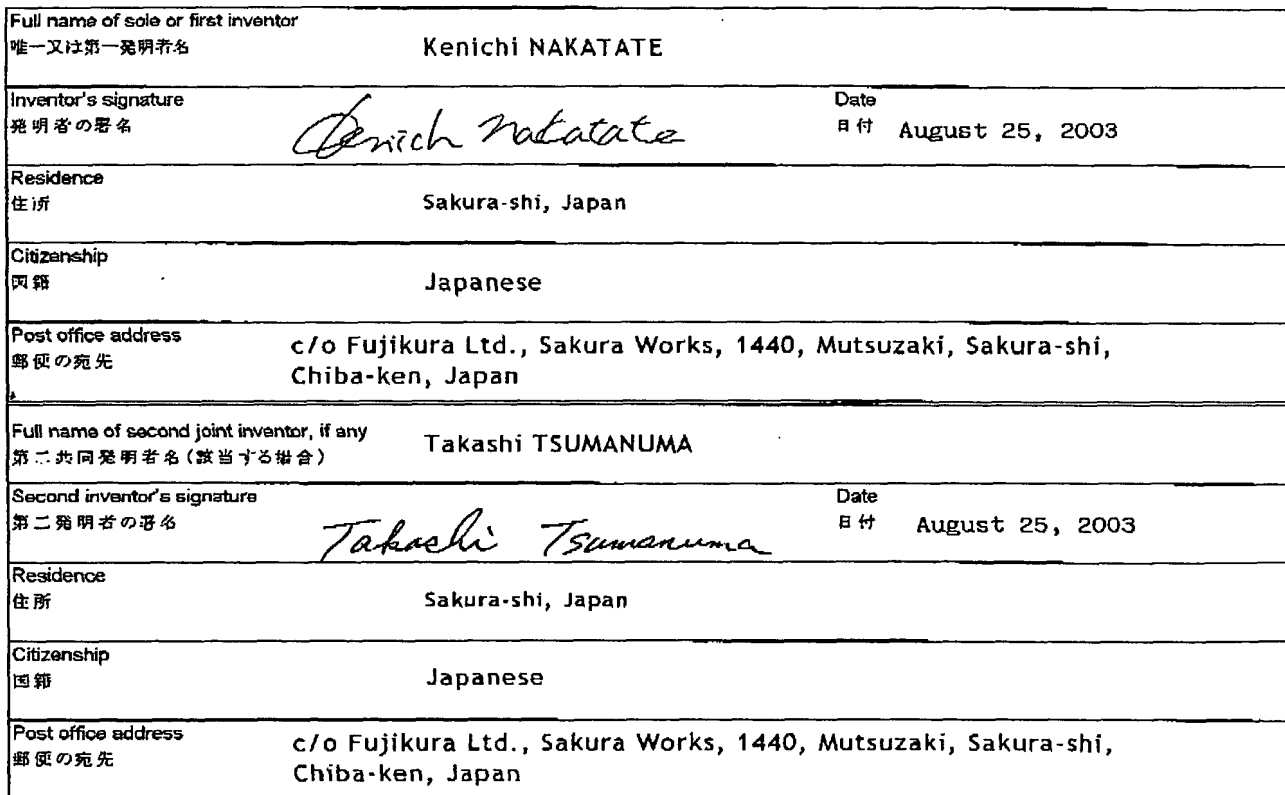 Full name of sole or first inventor
唯一又は第一発明者名 Kenichi NAKATATE
Inventor's signature
発明者の署名 Kenichi Nakatate
Date
日付 August 25, 2003
Residence
住所 Sakura-shi, Japan
Citizenship
国籍 Japanese
Post office address
郵便の宛先
c/o Fujikura Ltd., Sakura Works, 1440, Mutsuzaki, Sakura-shi,
Chiba-ken, Japan
Full name of second joint inventor, if any
第二共同発明者名(該当する場合) Takashi TSUMANUMA
Second inventor's signature
第二発明者の署名 Takashi Tsumanuma
Date
日付 August 25, 2003
Residence
住所 Sakura-shi, Japan
Citizenship
国籍 Japanese
Post office address
郵便の宛先
c/o Fujikura Ltd., Sakura Works, 1440, Mutsuzaki, Sakura-shi,
Chiba-ken, Japan